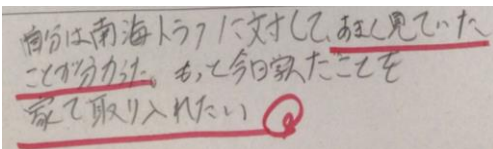 自分は南海トラフに対して、あまく見ていた
ことが分かった。もって今日家んたことを
家で取り入れたい